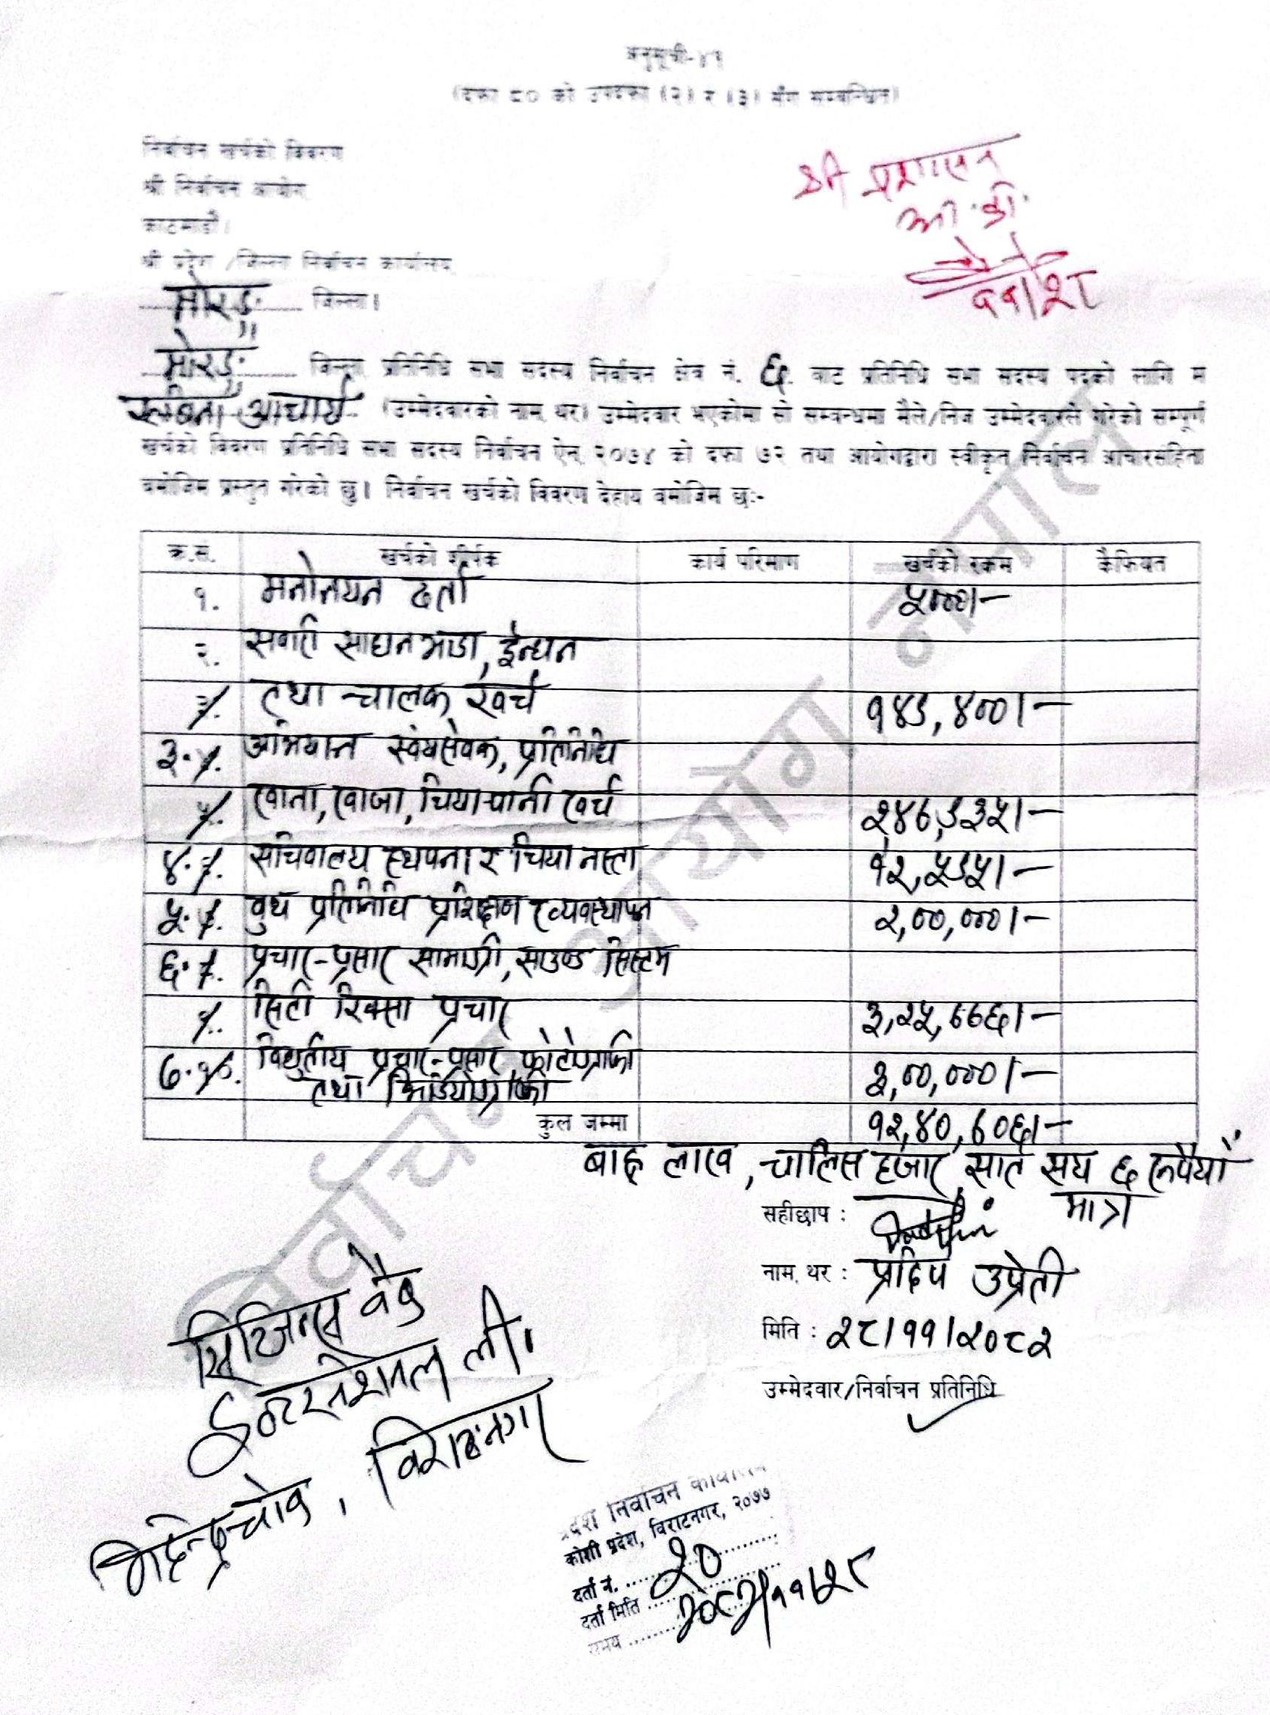 अनुसूची-४१
(दफा ८० को उपदफा (२) र (३) सँग सम्बन्धित)
निर्वाचन खर्चको विवरण
श्री निर्वाचन आयोग,
काठमाडौं।
श्री प्रदेश /जिल्ला निर्वाचन कार्यालय,
मोरङ जिल्ला।
श्री प्रशासन
मोरङ जिल्ला, प्रतिनिधि सभा सदस्य निर्वाचन क्षेत्र नं. ६ बाट प्रतिनिधि सभा सदस्य पदको लागि म
आचार्य (उम्मेदवारको नाम, थर) उम्मेदवार भएकोमा सो सम्बन्धमा मैले/निज उम्मेदवारले गरेको सम्पूर्ण
खर्चको विवरण प्रतिनिधि सभा सदस्य निर्वाचन ऐन, २०७४ को दफा ७२ तथा आयोगद्वारा स्वीकृत निर्वाचन आचारसंहिता
बमोजिम प्रस्तुत गरेको छु। निर्वाचन खर्चको विवरण देहाय बमोजिम छः-
क्र.सं. खर्चको शीर्षक कार्य परिमाण खर्चको रकम कैफियत
१. मनोनयन दर्ता ५०००।-
२. सवारी साधन भाडा, ईन्धन
तथा चालक खर्च १४९,४००।-
३. अभियान स्वंयसेवक, प्रतिनिधि
खाना, खाजा, चियापानी खर्च २४७,९३५।-
४. सचिवालय स्थापना र चिया नास्ता १२,५९५।-
५. वुथ प्रतिनिधि प्रशिक्षण व्यवस्थापन २,००,०००।-
६. प्रचार-प्रसार सामाग्री, साउण्ड सिस्टम
सिटी रिक्सा प्रचार ३,२५,७७६।-
७. विद्युतीय प्रचार-प्रसार फोटोग्राफी
तथा भिडियोग्राफी ३,००,०००।-
कुल जम्मा १२,४०,७०६।-
बाह्र लाख, चालिस हजार, सात सय ६ रूपैयाँ
मात्र
सहीछाप :
नाम, थर : प्रदिप उप्रेती
मिति : २८।११।२०८२
उम्मेदवार/निर्वाचन प्रतिनिधि
सिटिजन्स बैंक
इन्टरनेशनल ली.
महेन्द्रचोक, विराटनगर
प्रदेश निर्वाचन कार्यालय
कोशी प्रदेश, विराटनगर, २०७७
दर्ता नं. २०
दर्ता मिति २०८२।११।२८
समय
निर्वाचन आयोग नेपाल